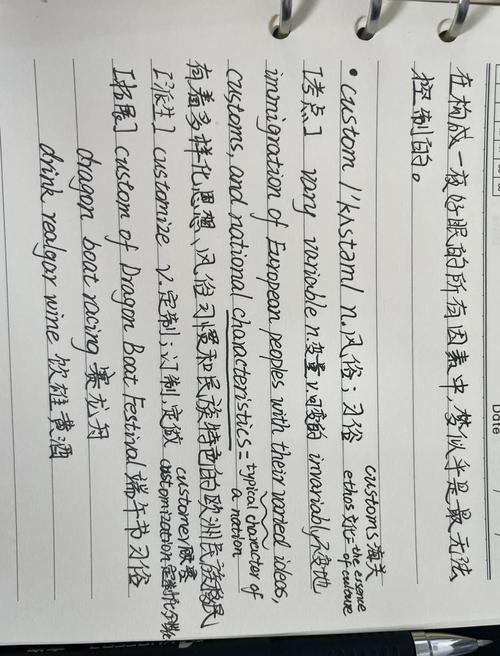 Date
在构成一夜好眠的所有因素中,梦似乎是最无法
控制的。
customs海关
• custom /'kʌstəm/ n.风俗;习俗 ethos文化=the essence of culture
[考点] vary variable n.变量 v.可变的 invariably不变地
immigration of European peoples with their varied ideas,
customs, and national characteristics = typical character of a nation
有着多样化思想、风俗习惯和民族特色的欧洲民族移民
customer顾客
[派生] customize v.定制;订制 定做 customization
[拓展] custom of Dragon Boat Festival 端午节习俗
dragon boat racing 赛龙舟
drink realgar wine 饮雄黄酒